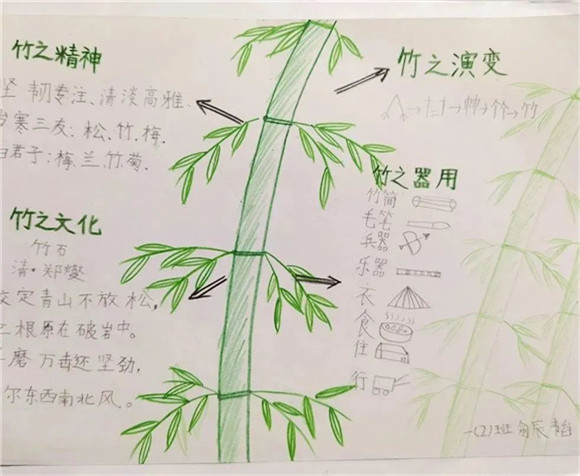 竹之精神
坚韧专注、清淡高雅.
寒三友：松、竹、梅.
君子：梅、兰、竹、菊.
竹之文化
竹石
清·郑燮
咬定青山不放松，
根原在破岩中。
磨万击还坚劲，
尔东西南北风。
竹之演变
竹
竹之器用
竹简
毛笔
兵器
乐器
衣
食
住
行
一(2)班